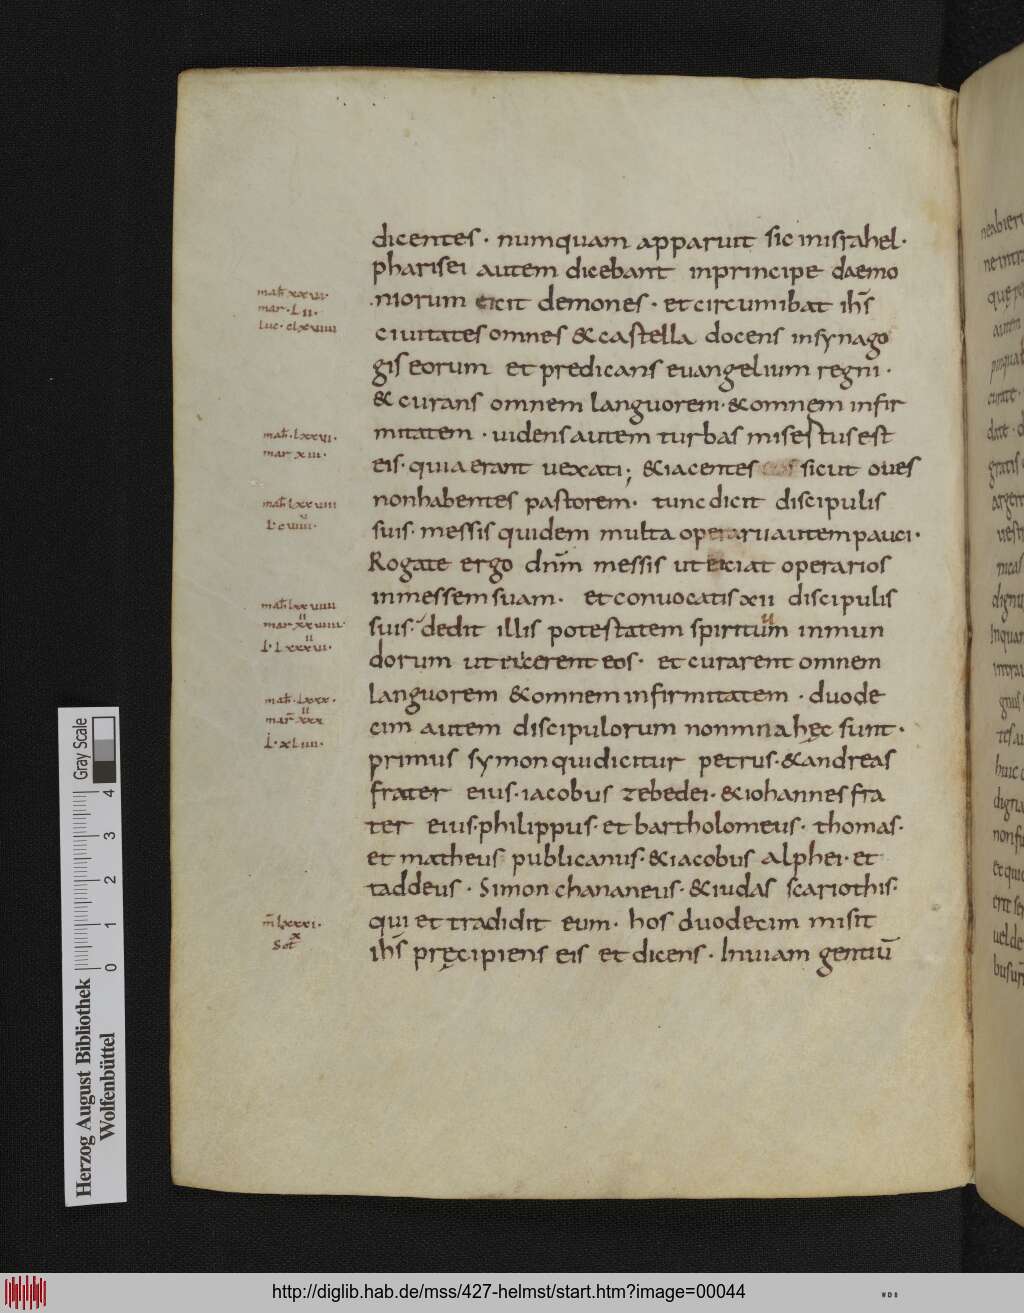 dicentes · numquam apparuit sic inisrahel ·
pharisei autem dicebant inprincipe daemo
niorum eicit demones · et circumibat ihs̄
ciuitates omnes & castella docens insynago
gis eorum et predicans euangelium regni ·
& curans omnem languorem · & omnem infir
mitatem · uidens autem turbas misertus est
eis · quia erant uexati ; & iacentes sicut oues
nonhabentes pastorem · tunc dicit discipulis
suis · messis quidem multa operarii autem pauci ·
Rogate ergo dnm̄ messis ut eiciat operarios
inmessem suam · et conuocatis xii discipulis
suis · dedit illis potestatem spirituum inmun
dorum ut eicerent eos · et curarent omnem
languorem & omnem infirmitatem · duode
cim autem discipulorum nomina hęc sunt ·
primus symon qui dicitur petrus · & andreas
frater eius · iacobus zebedei · & iohannes fra
ter eius · philippus · et bartholomeus · thomas ·
et matheus publicanus · & iacobus alphei · et
taddeus · Simon chananeus · & iudas scariothis ·
qui et tradidit eum · hos duodecim misit
ihs̄ pręcipiens eis et dicens · Inuiam gentiū
mar · Lii ·
mar xiii ·
Gray Scale
0 1 2 3 4
Herzog August Bibliothek
Wolfenbüttel
http://diglib.hab.de/mss/427-helmst/start.htm?image=00044